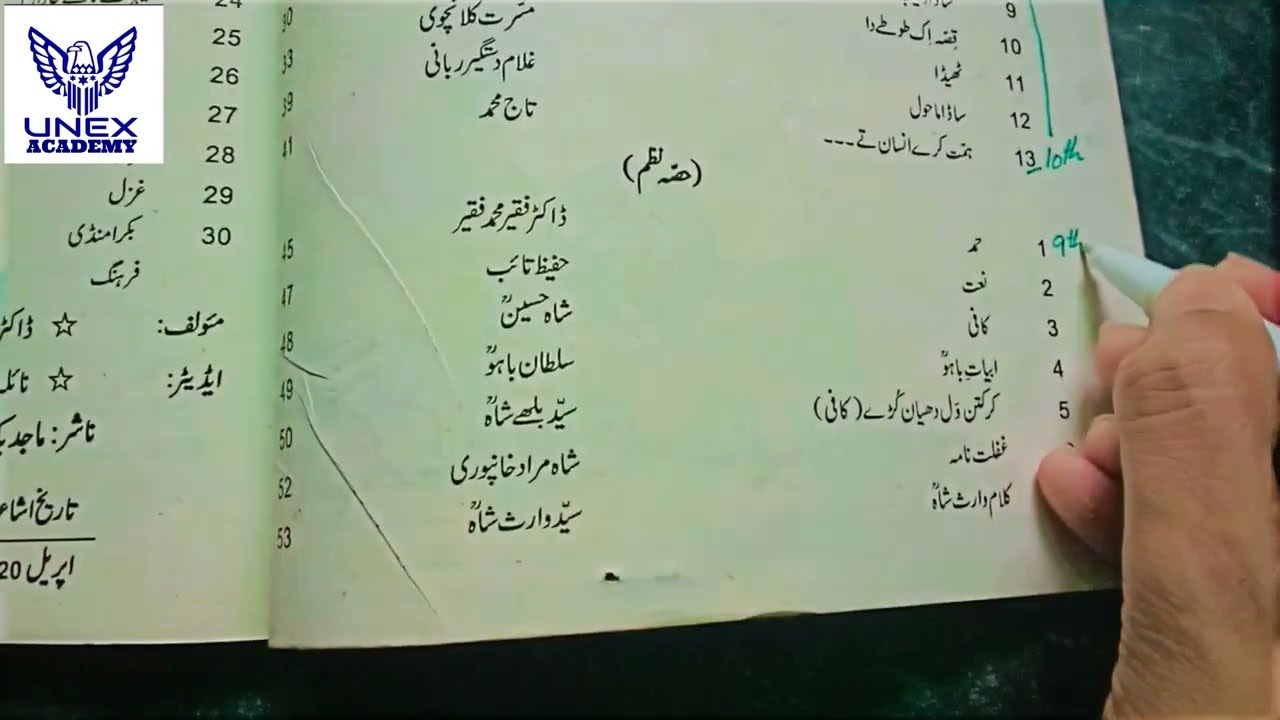 UNEX
ACADEMY
9
10 قِصّہ اِک طوطے دا غلام دستگیر ربانی 33
11 ٹھیڈا تاج محمد 39
12 ساڈا ماحول 41
13 ہمت کرے انسان تے۔۔۔ 10th
مسّرت کلانچوی 30
(حصّہ نظم)
1 حمد ڈاکٹر فقیر محمد فقیر 45 9th
2 نعت حفیظ تائب 47
3 کافی شاہ حسینؒ 48
4 ابیاتِ باہوؒ سلطان باہوؒ 49
5 کر کتن وَل دھیان کُڑے (کافی) سیّد بلھے شاہؒ 50
غفلت نامہ شاہ مراد خانپوری 52
کلام وارث شاہؒ سیّد وارث شاہؒ 53
24
25
26
27
28
29 غزل
30 بکرا منڈی
فرہنگ
مؤلف: ☆
ایڈیٹر: ☆
ناشر: ماجد
تاریخ
اپریل 20